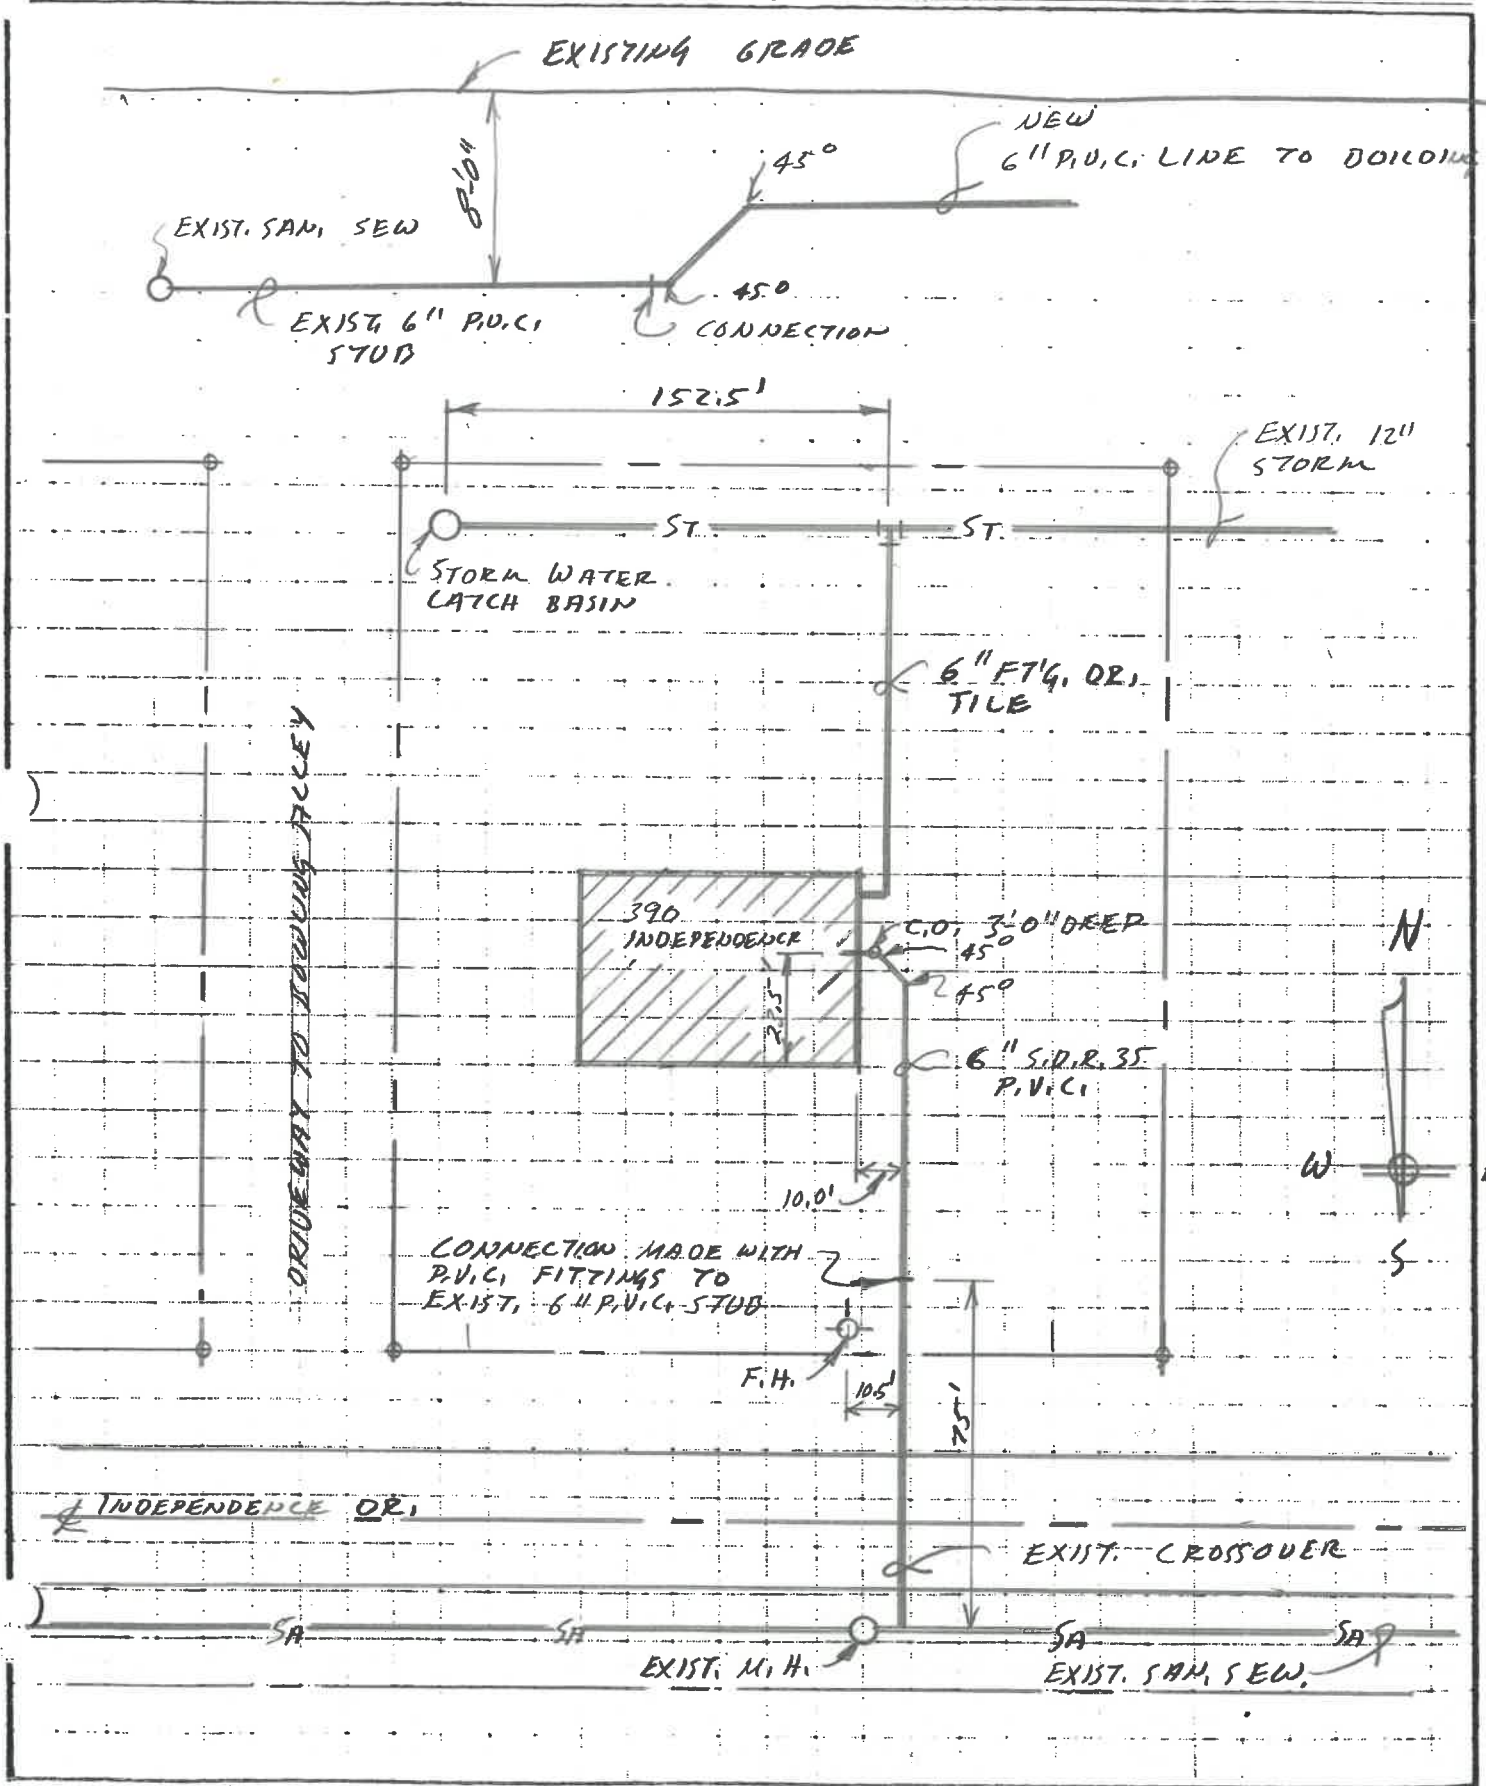 EXISTING GRADE
NEW
6" P.V.C. LINE TO BUILDING
45°
8'-0"
EXIST. SAN. SEW
45°
CONNECTION
EXIST. 6" P.V.C.
STUB
152.5'
EXIST. 12"
STORM
ST.
ST.
STORM WATER
CATCH BASIN
6" FT'G. DR.
TILE
DRIVEWAY TO BOWLING ALLEY
390
INDEPENDENCE
C.O. 3'-0" DEEP
45°
45°
22.5'
N
6" S.D.R. 35
P.V.C.
W
S
10.0'
CONNECTION MADE WITH
P.V.C. FITTINGS TO
EXIST. 6" P.V.C. STUB
F.H.
10.5'
75'
℄ INDEPENDENCE DR.
EXIST. CROSSOVER
SA
SA
SA
SA
EXIST. M.H.
EXIST. SAN. SEW.